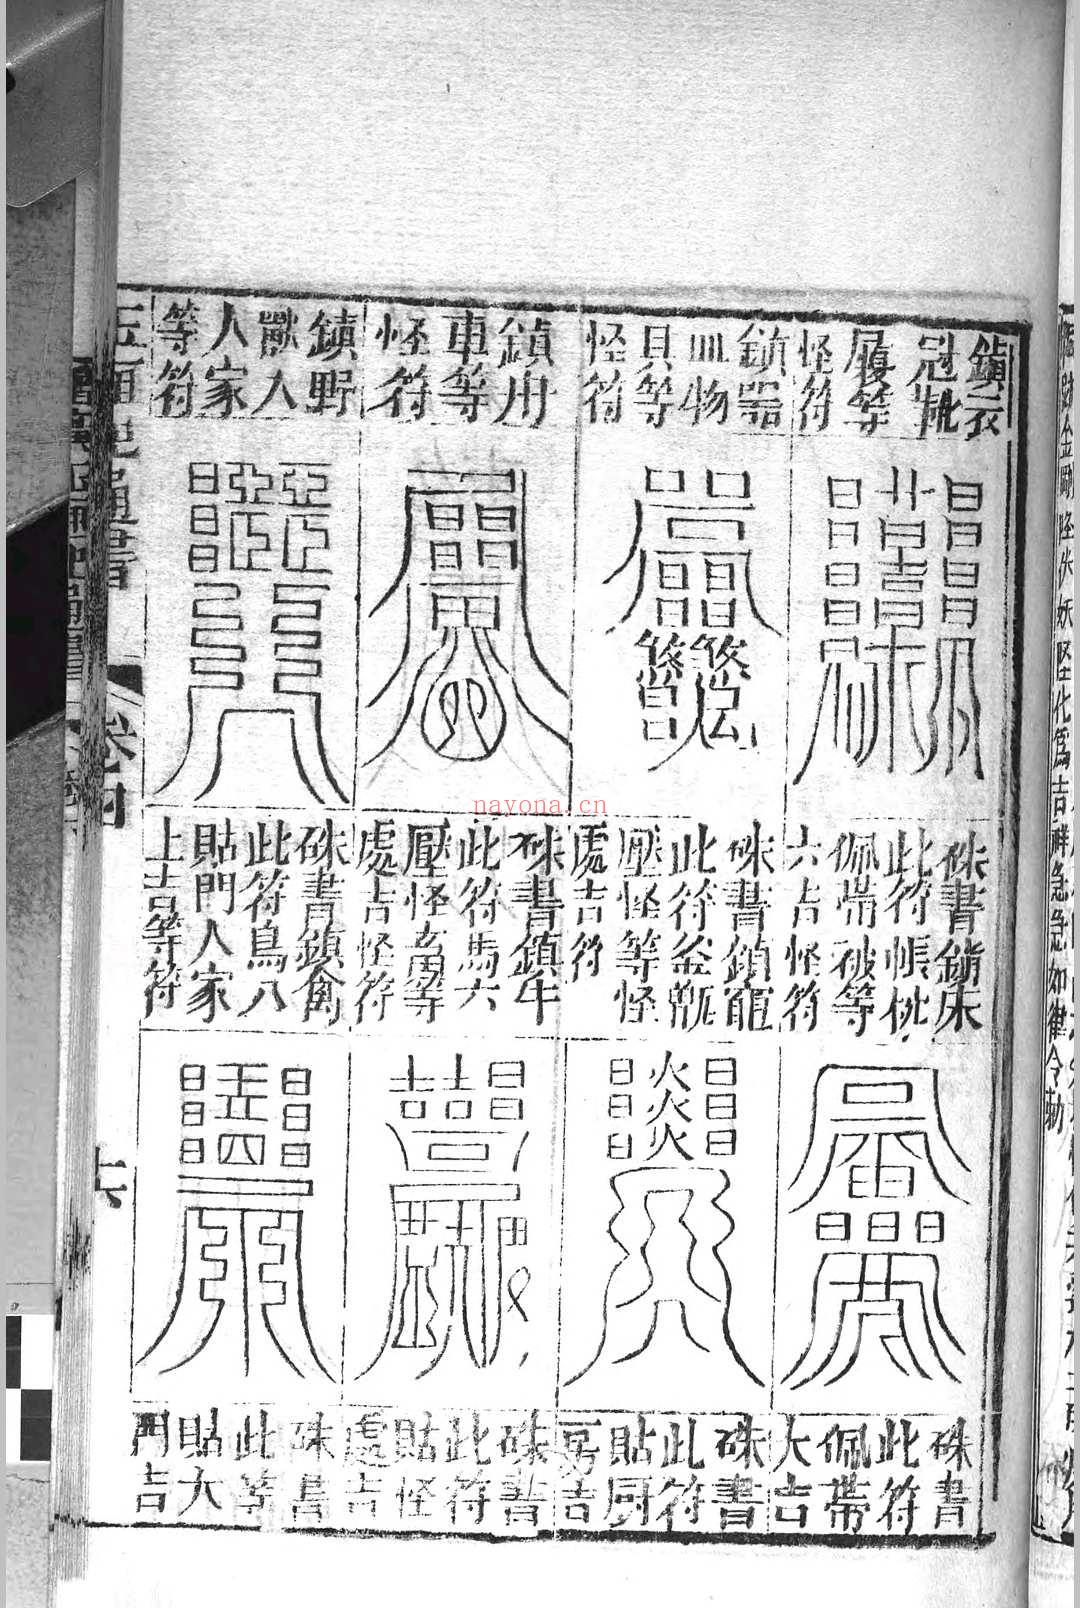 金剛降伏妖怪化爲吉祥急急如律令勅
鎮衣
冠靴
履等
怪符
鎮器
皿物
具等
怪符
鎮舟
車等
怪符
鎮野
獸入
人家
等符
硃書鎮床
此符帳枕
佩帶被等
大吉怪符
硃書鎮竈
此符釜甑
壓怪等怪
處吉符
硃書鎮牛
此符馬六
壓怪畜等
處吉怪符
硃書鎮禽
此符鳥入
貼門人家
上吉等符
硃書
此符
佩帶
大吉
硃書
此符
貼厨
房吉
硃書
此符
貼怪
處吉
硃書
此等
貼大
門吉
玉匣記通書
卷四
nayona.cn